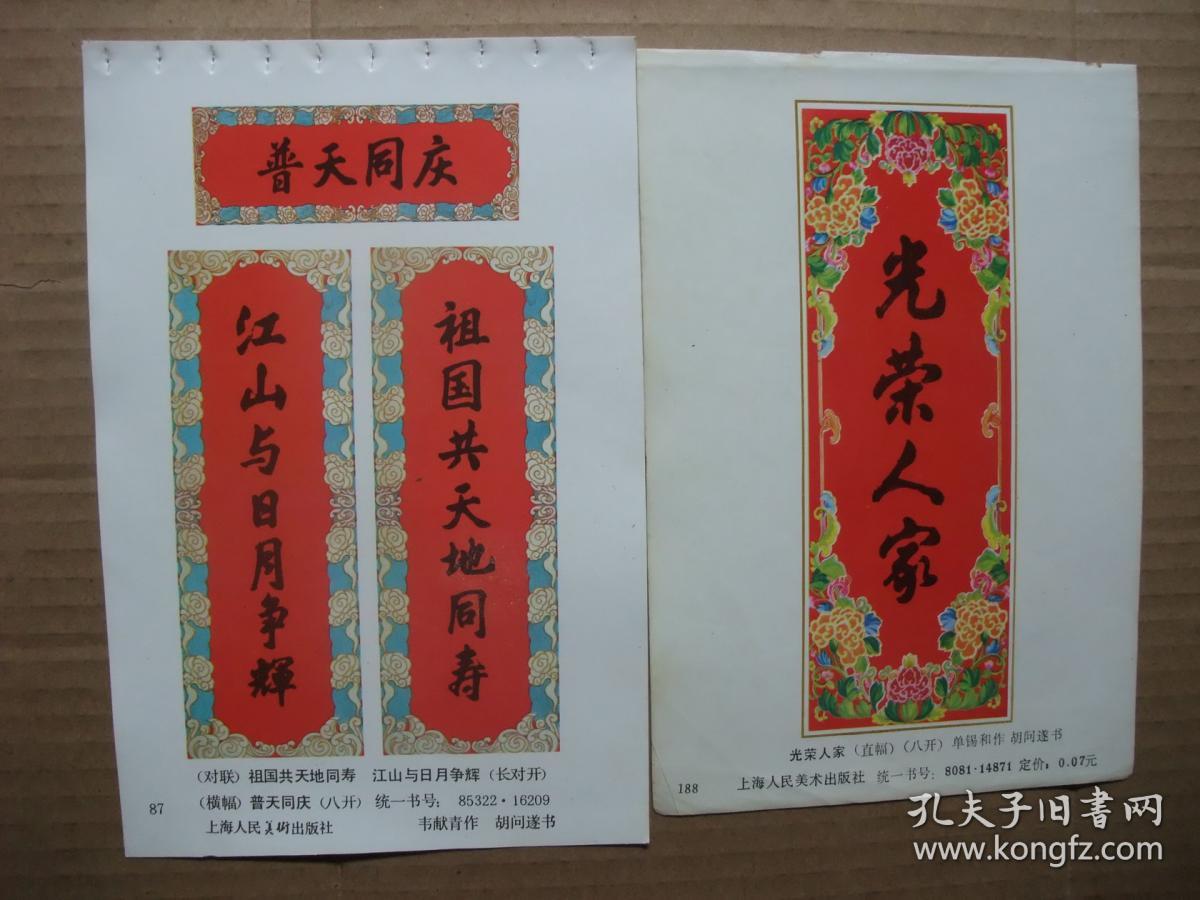 普天同庆
祖国共天地同寿
江山与日月争輝
(对联) 祖国共天地同寿 江山与日月争辉 (长对开)
(横幅) 普天同庆 (八开) 统一书号: 85322·16209
87
上海人民美術出版社 韦献青作 胡问遂书
光荣人家
光荣人家 (直幅) (八开) 单锡和作 胡问遂书
188
上海人民美术出版社 统一书号: 8081·14871 定价: 0.07元
孔夫子旧书网
www.kongfz.com